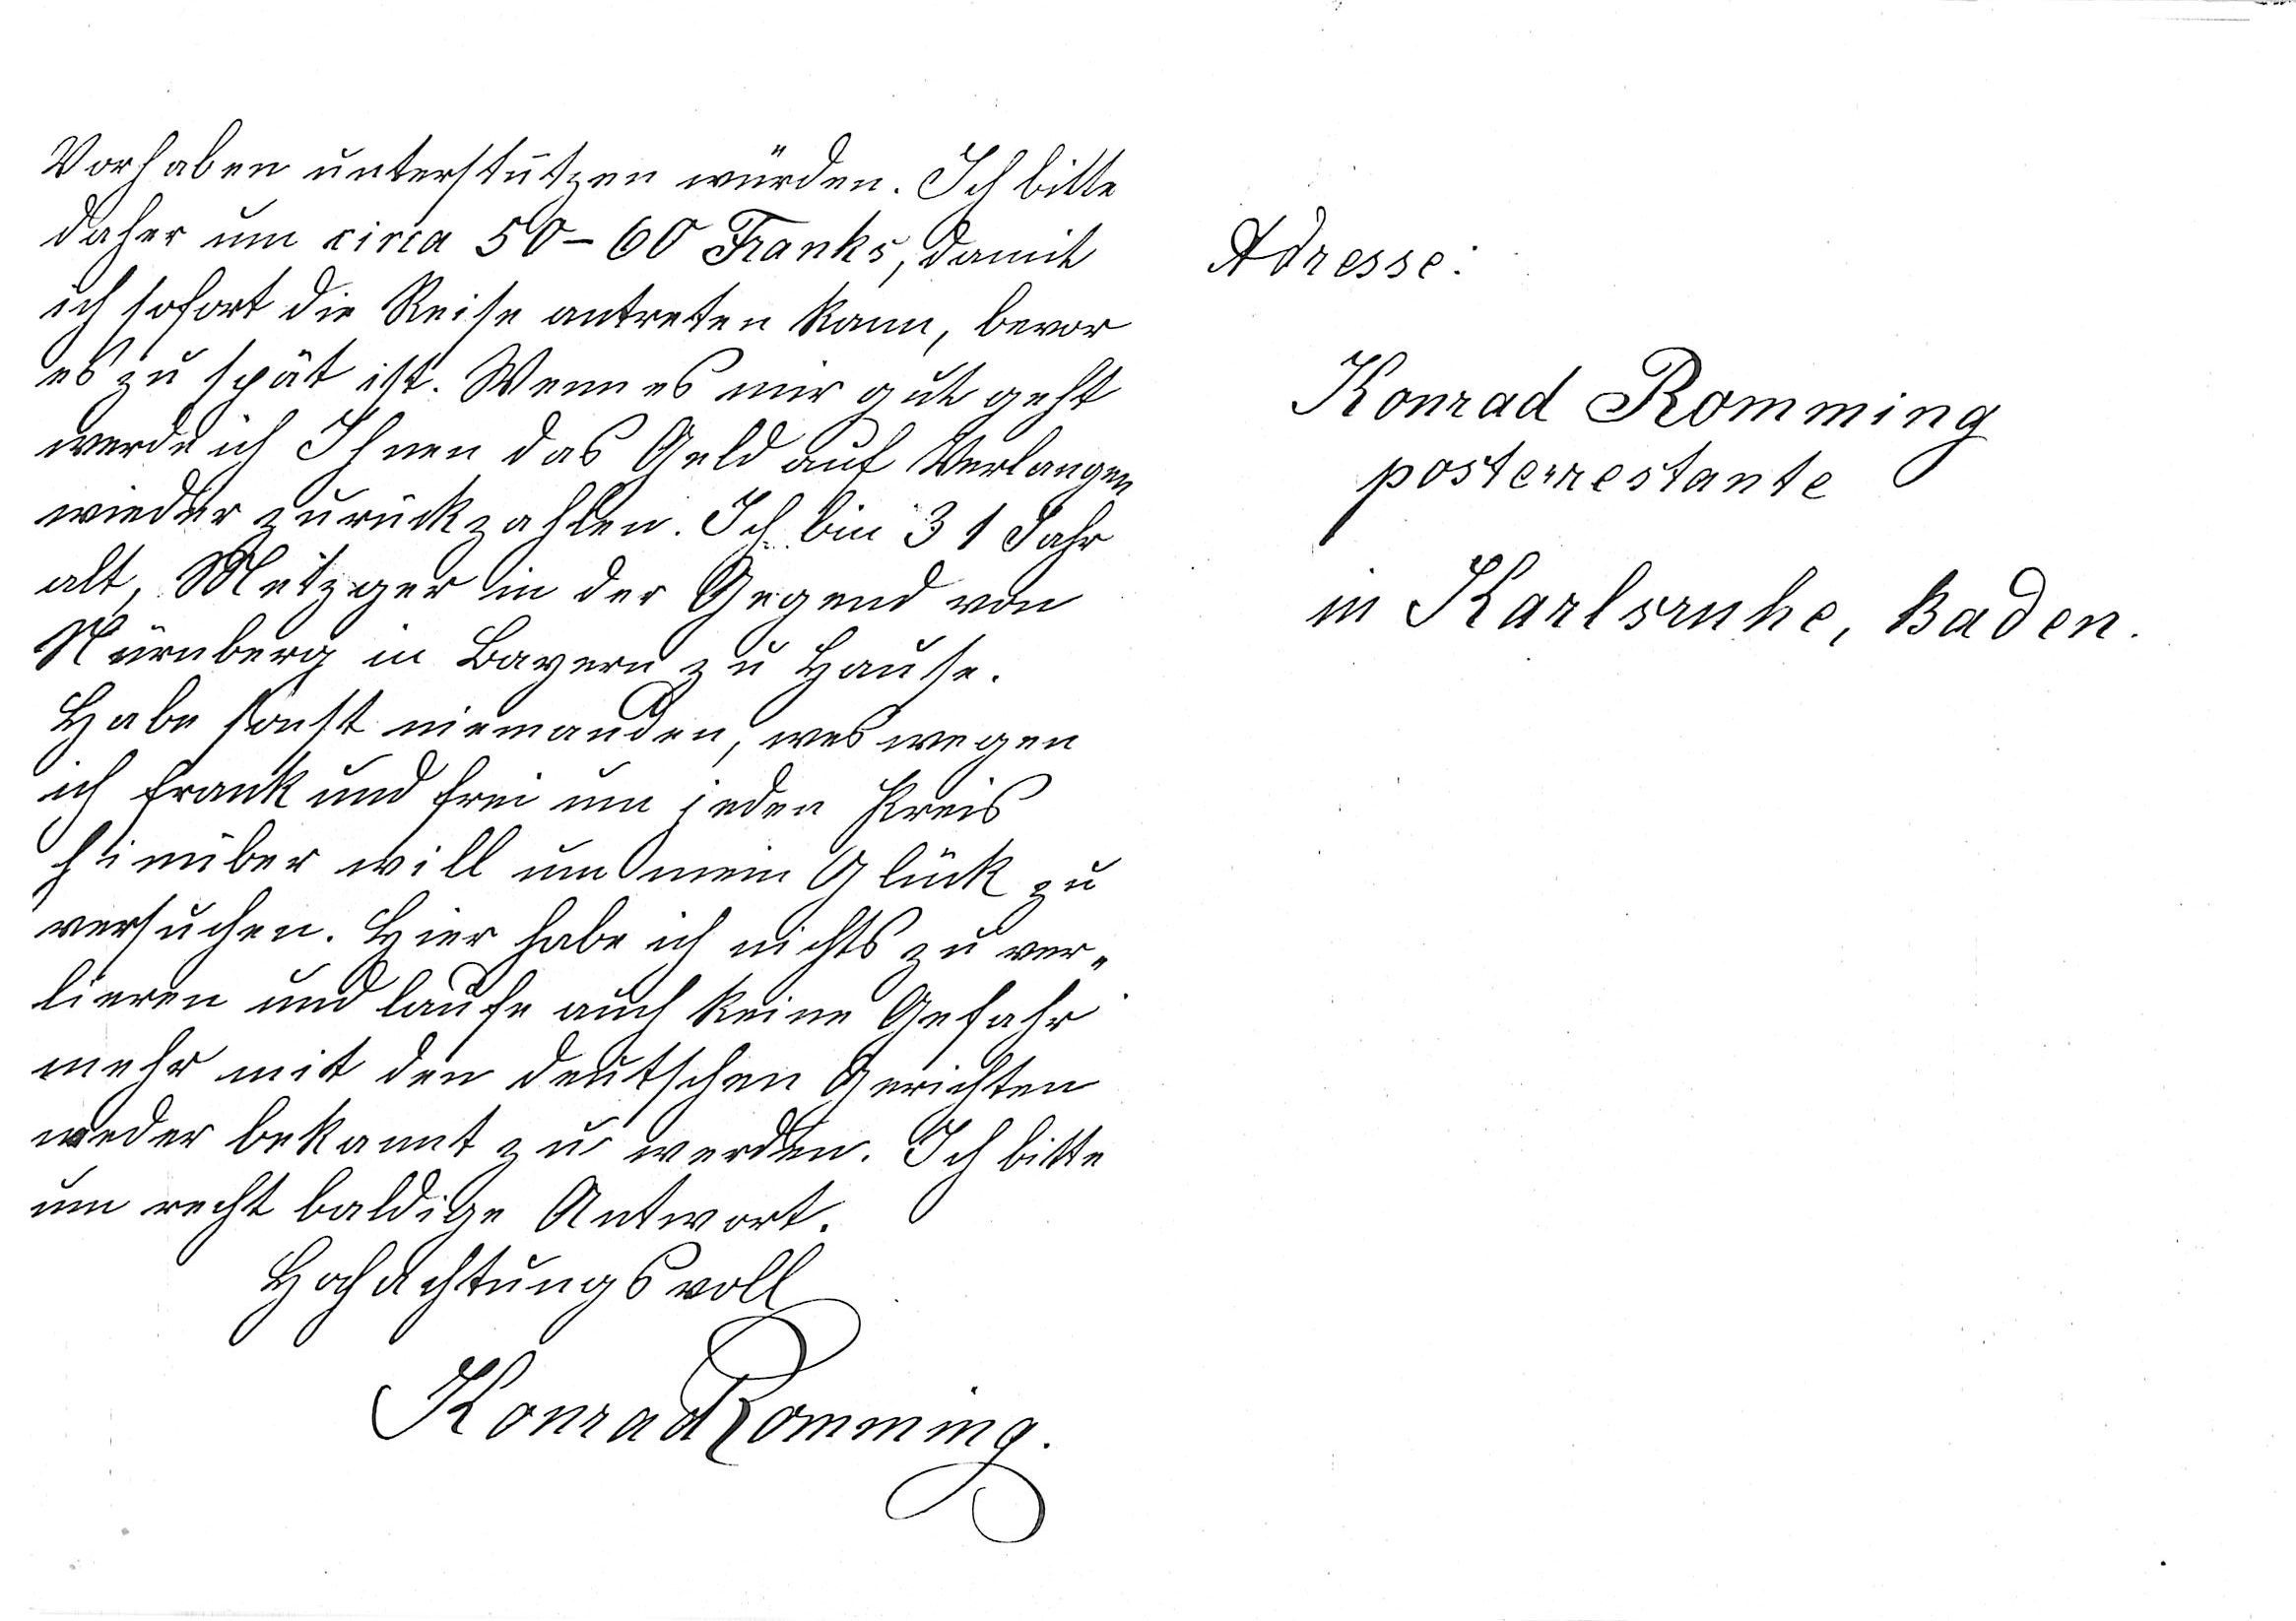 Vorhaben unterstützen würden. Ich bitte
daher um circa 50-60 Franks, damit
ich sofort die Reise antreten kann, bevor
es zu spät ist. Wenn es mir gut geht
werde ich Ihnen das Geld auf Verlangen
wieder zurückzahlen. Ich bin 31 Jahr
alt, Metzger in der Gegend von
Nürnberg in Bayern zu Hause.
Habe sonst niemanden, weswegen
ich frank und frei um jeden Preis
hinüber will um mein Glück zu
versuchen. Hier habe ich nichts zu ver„
lieren und laufe auch keine Gefahr
mehr mit den deutschen Gerichten
weder bekannt zu werden. Ich bitte
um recht baldige Antwort.
Hochachtungsvoll
Konrad Romming.
Adresse:
Konrad Romming
posterrestante
in Karlsruhe, Baden.